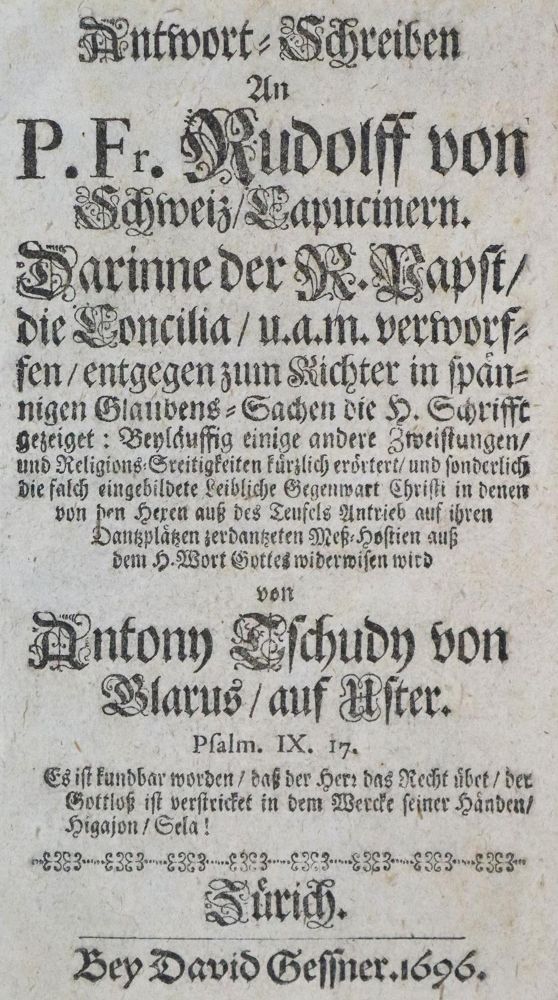 Antwort-Schreiben
An
P. Fr. Rudolff von
Schweiz/Capucinern.
Darinne der R. Papst/
die Concilia/ u.a.m. verworf-
fen/ entgegen zum Richter in spän-
nigen Glaubens-Sachen die H. Schrifft
gezeiget: Beyläuffig einige andere Zweistungen/
und Religions-Sreitigkeiten kürzlich erörtert/ und sonderlich
die falch eingebildete Leibliche Gegenwart Christi in denen
von den Hexen auß des Teufels Antrieb auf ihren
Dantzplätzen zerdantzeten Meß-Hostien auß
dem H. Wort Gottes widerwisen wird
von
Antony Tschudy von
Glarus/ auf Uster.
Psalm. IX. 17.
Es ist kundbar worden/ daß der Herr das Recht übet/ der
Gottloß ist verstricket in dem Wercke seiner Händen/
Higajon/ Sela!
Zürich.
Bey David Gessner. 1696.